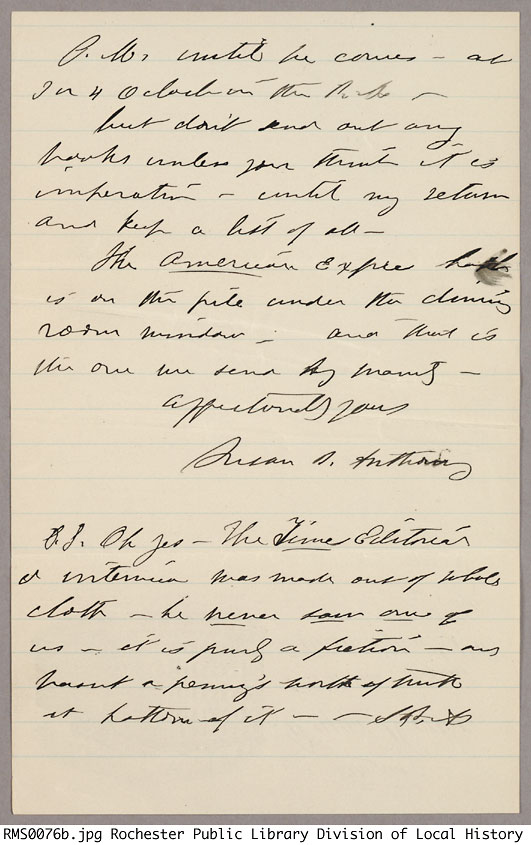 P.M. until he comes – at
3 or 4 Oclock in the
but don't send out any
books unless you think it is
imperative – until my return
and keep a list of all –
The American Expres books
is on the pile under the dining
room window – and that is
the one we send by mainly –
Affectionately yours
Susan B. Anthony
P.S. Oh yes – The Time Editorial
& interview was made out of whole
cloth – he never saw one of
us – it is purely a fiction –
hasn't a penny's worth of truth
at bottom of it – – S.B.A
RMS0076b.jpg Rochester Public Library Division of Local History